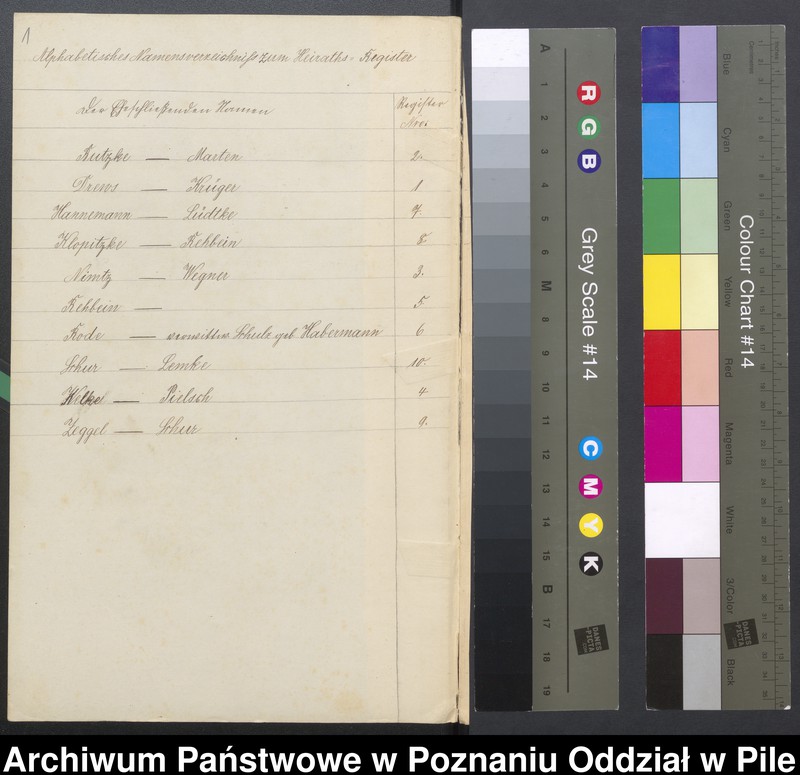 1
Alphabetisches Namensverzeichniß zum Heiraths-Register
Der Eheschließenden Namen
Register Nro.
Butzke — Marten 2.
Drews — Krüger 1
Hannemann — Lüdtke 7.
Klopitzke — Rehbein 8.
Nimtz — Wegner 3.
Rehbein — 5.
Rode — verwittw. Schulz geb. Habermann 6
Schur — Lemke 10.
Welke — Pielsch 4
Zeggel — Schur 9.
A 1 2 3 4 5 6 M 8 9 10 11 12 13 14 15 B 17 18 19
R G B
Grey Scale #14
C M Y K
DANES
PICTA
.COM
Blue
Cyan
Green
Yellow
Red
Magenta
White
3/Color
Black
Colour Chart #14
Centimetres
DANES
PICTA
.COM
Archiwum Państwowe w Poznaniu Oddział w Pile